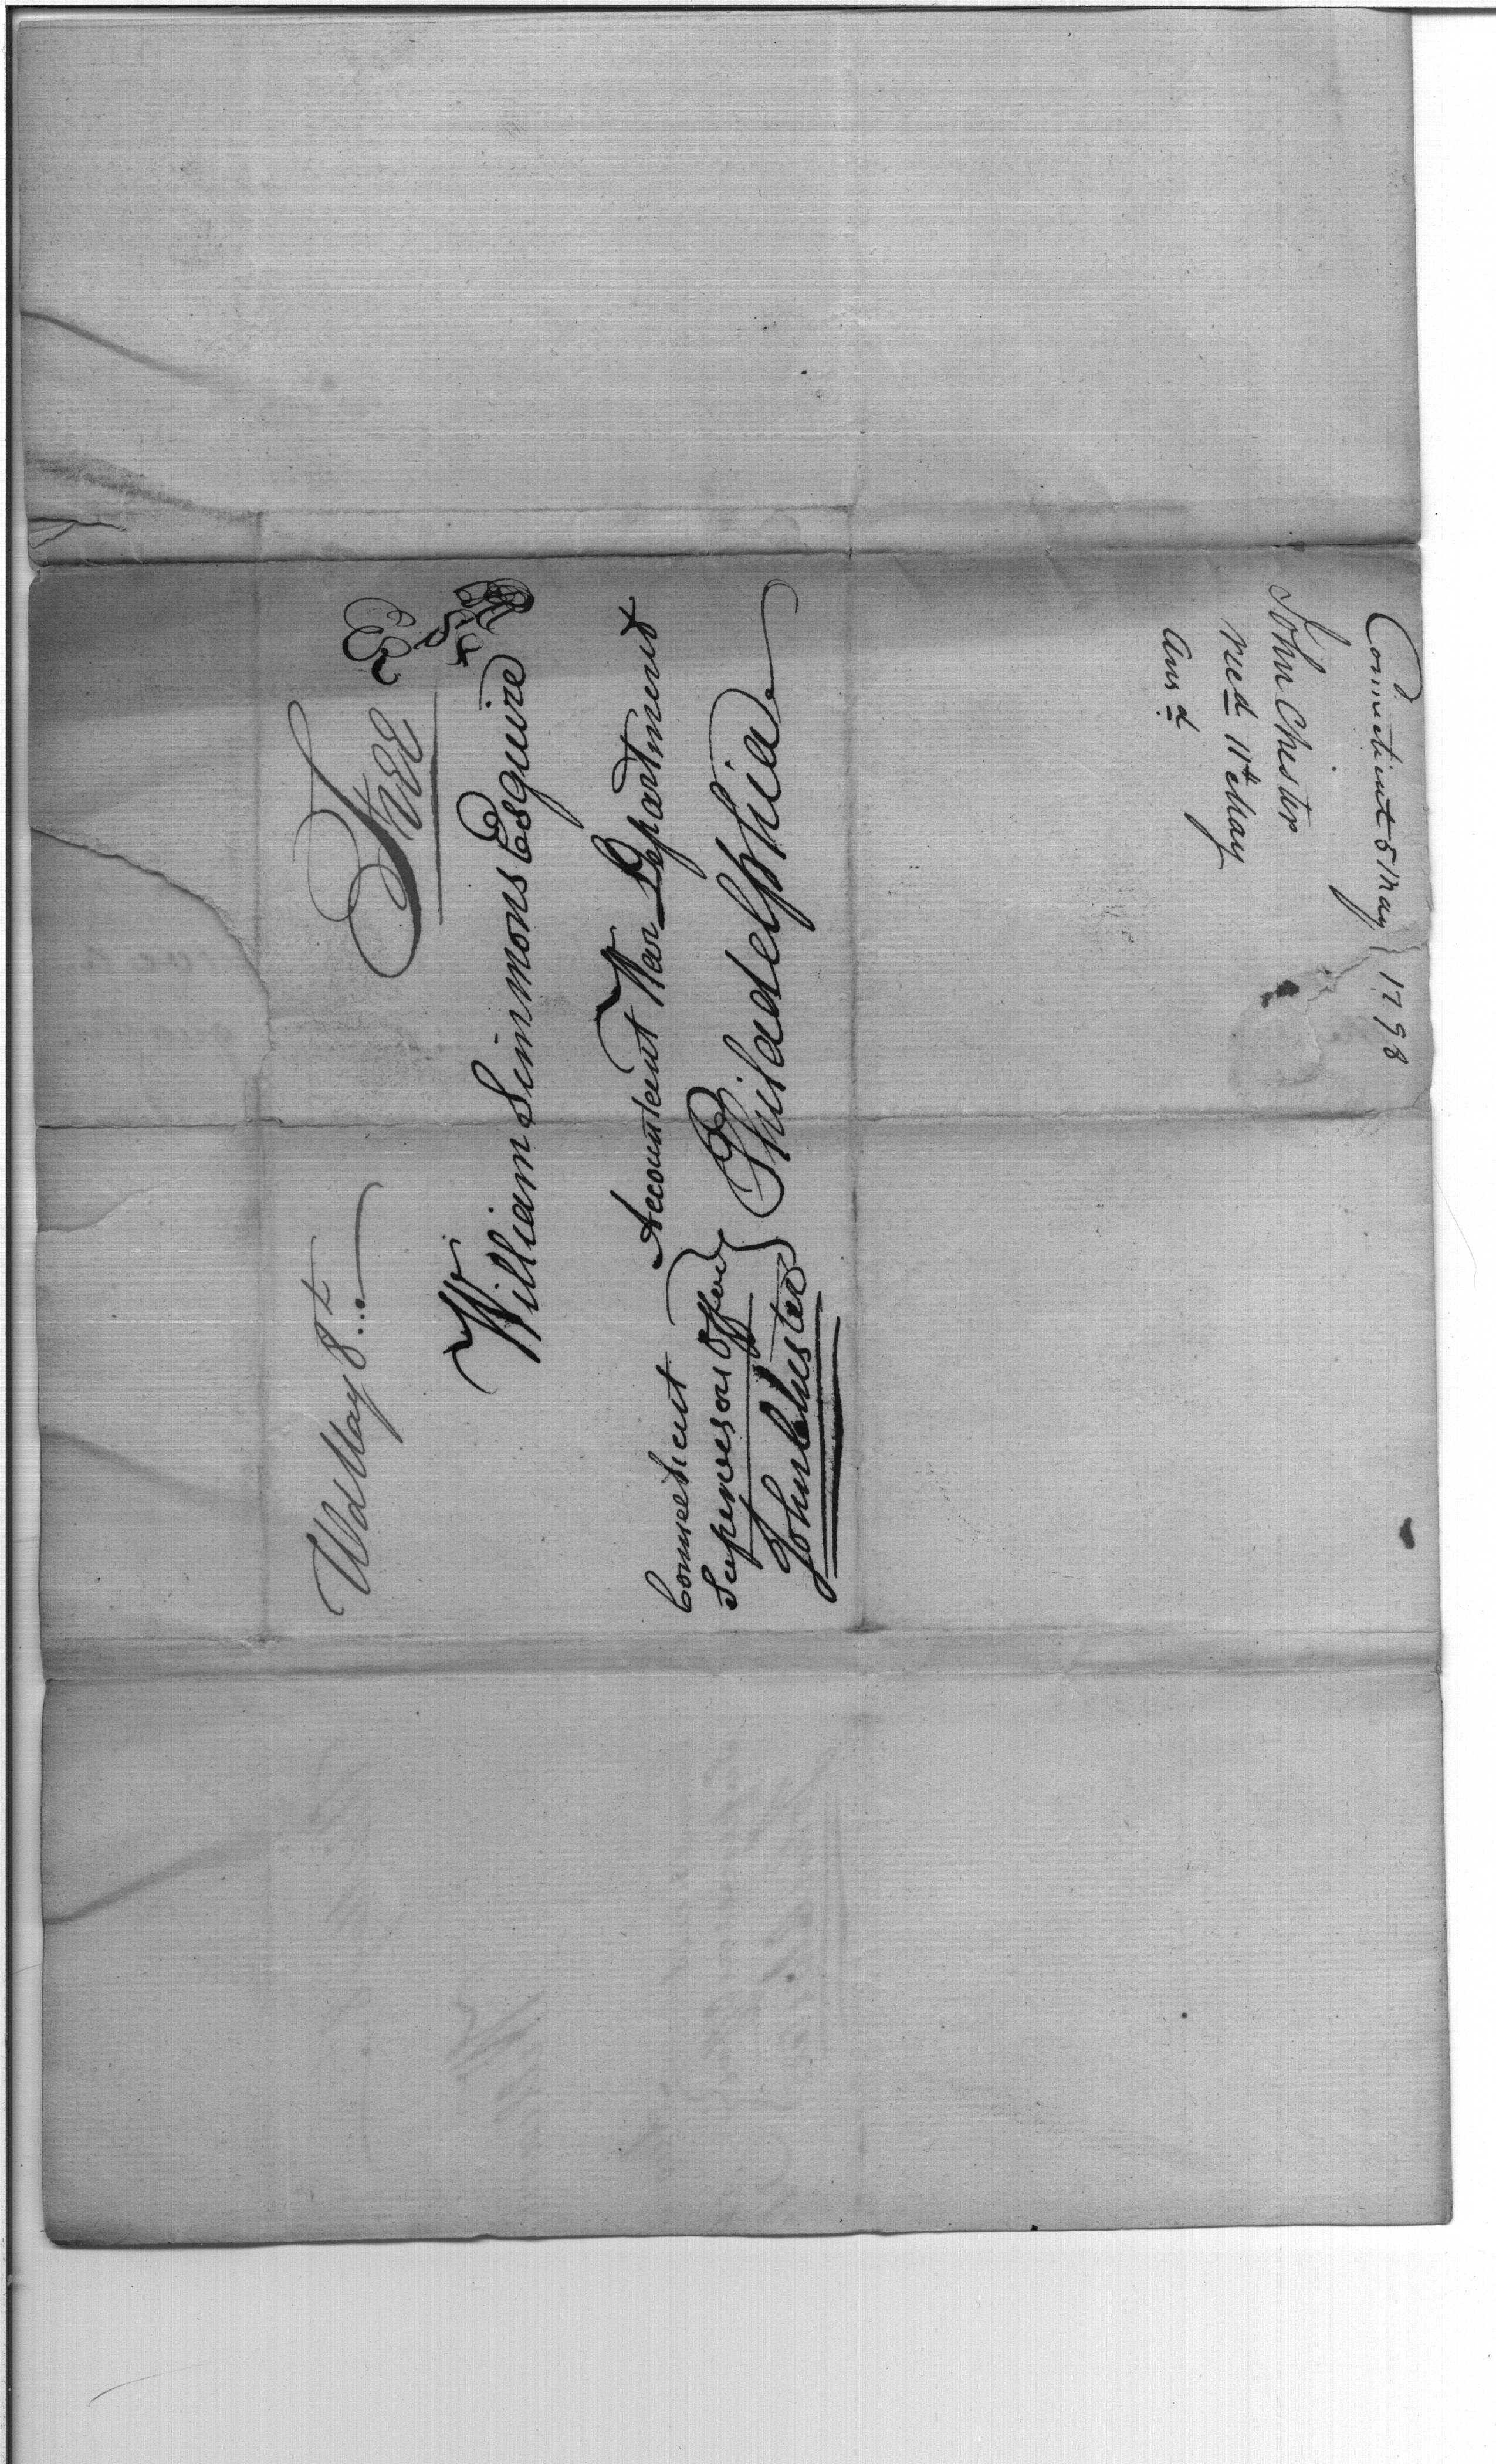 Wd May 8t
Free
William Simmons Esquire
Accountant War Department
Philadelphia
Connecticut
Supervisors Office
John Chester
Connecticut 5 May 1798
John Chester
recd 11th May
Ansd